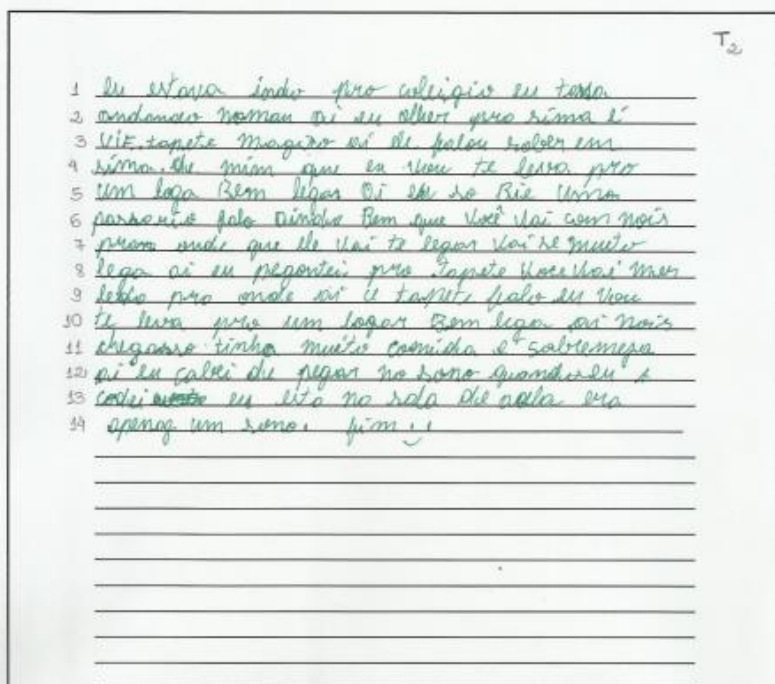 T2
1 eu estava indo pro coleigio eu tava
2 andando noman ai eu olhei pra sima é
3 ViE. tapete magiro ai ele falou sober em
4 sima. de mim que eu vou te leva pro
5 um loga Bem legar Oi so Rie uma
6 passario falo ainda Bem que você vai com nois
7 onde que ele vai te legar vai se mueto
8 lega ai eu pegontei pro tapete voce vai mer
9 pro onde ai o tapete falo eu vou
10 te leva pro um logar Bem lega ai nois
11 chegasso tinha mueto comida e sabremesa
12 ai eu cabei de pegar no sono quando eu a
13 codei eu esto na sala de aula era
14 apenaz um sono. fim